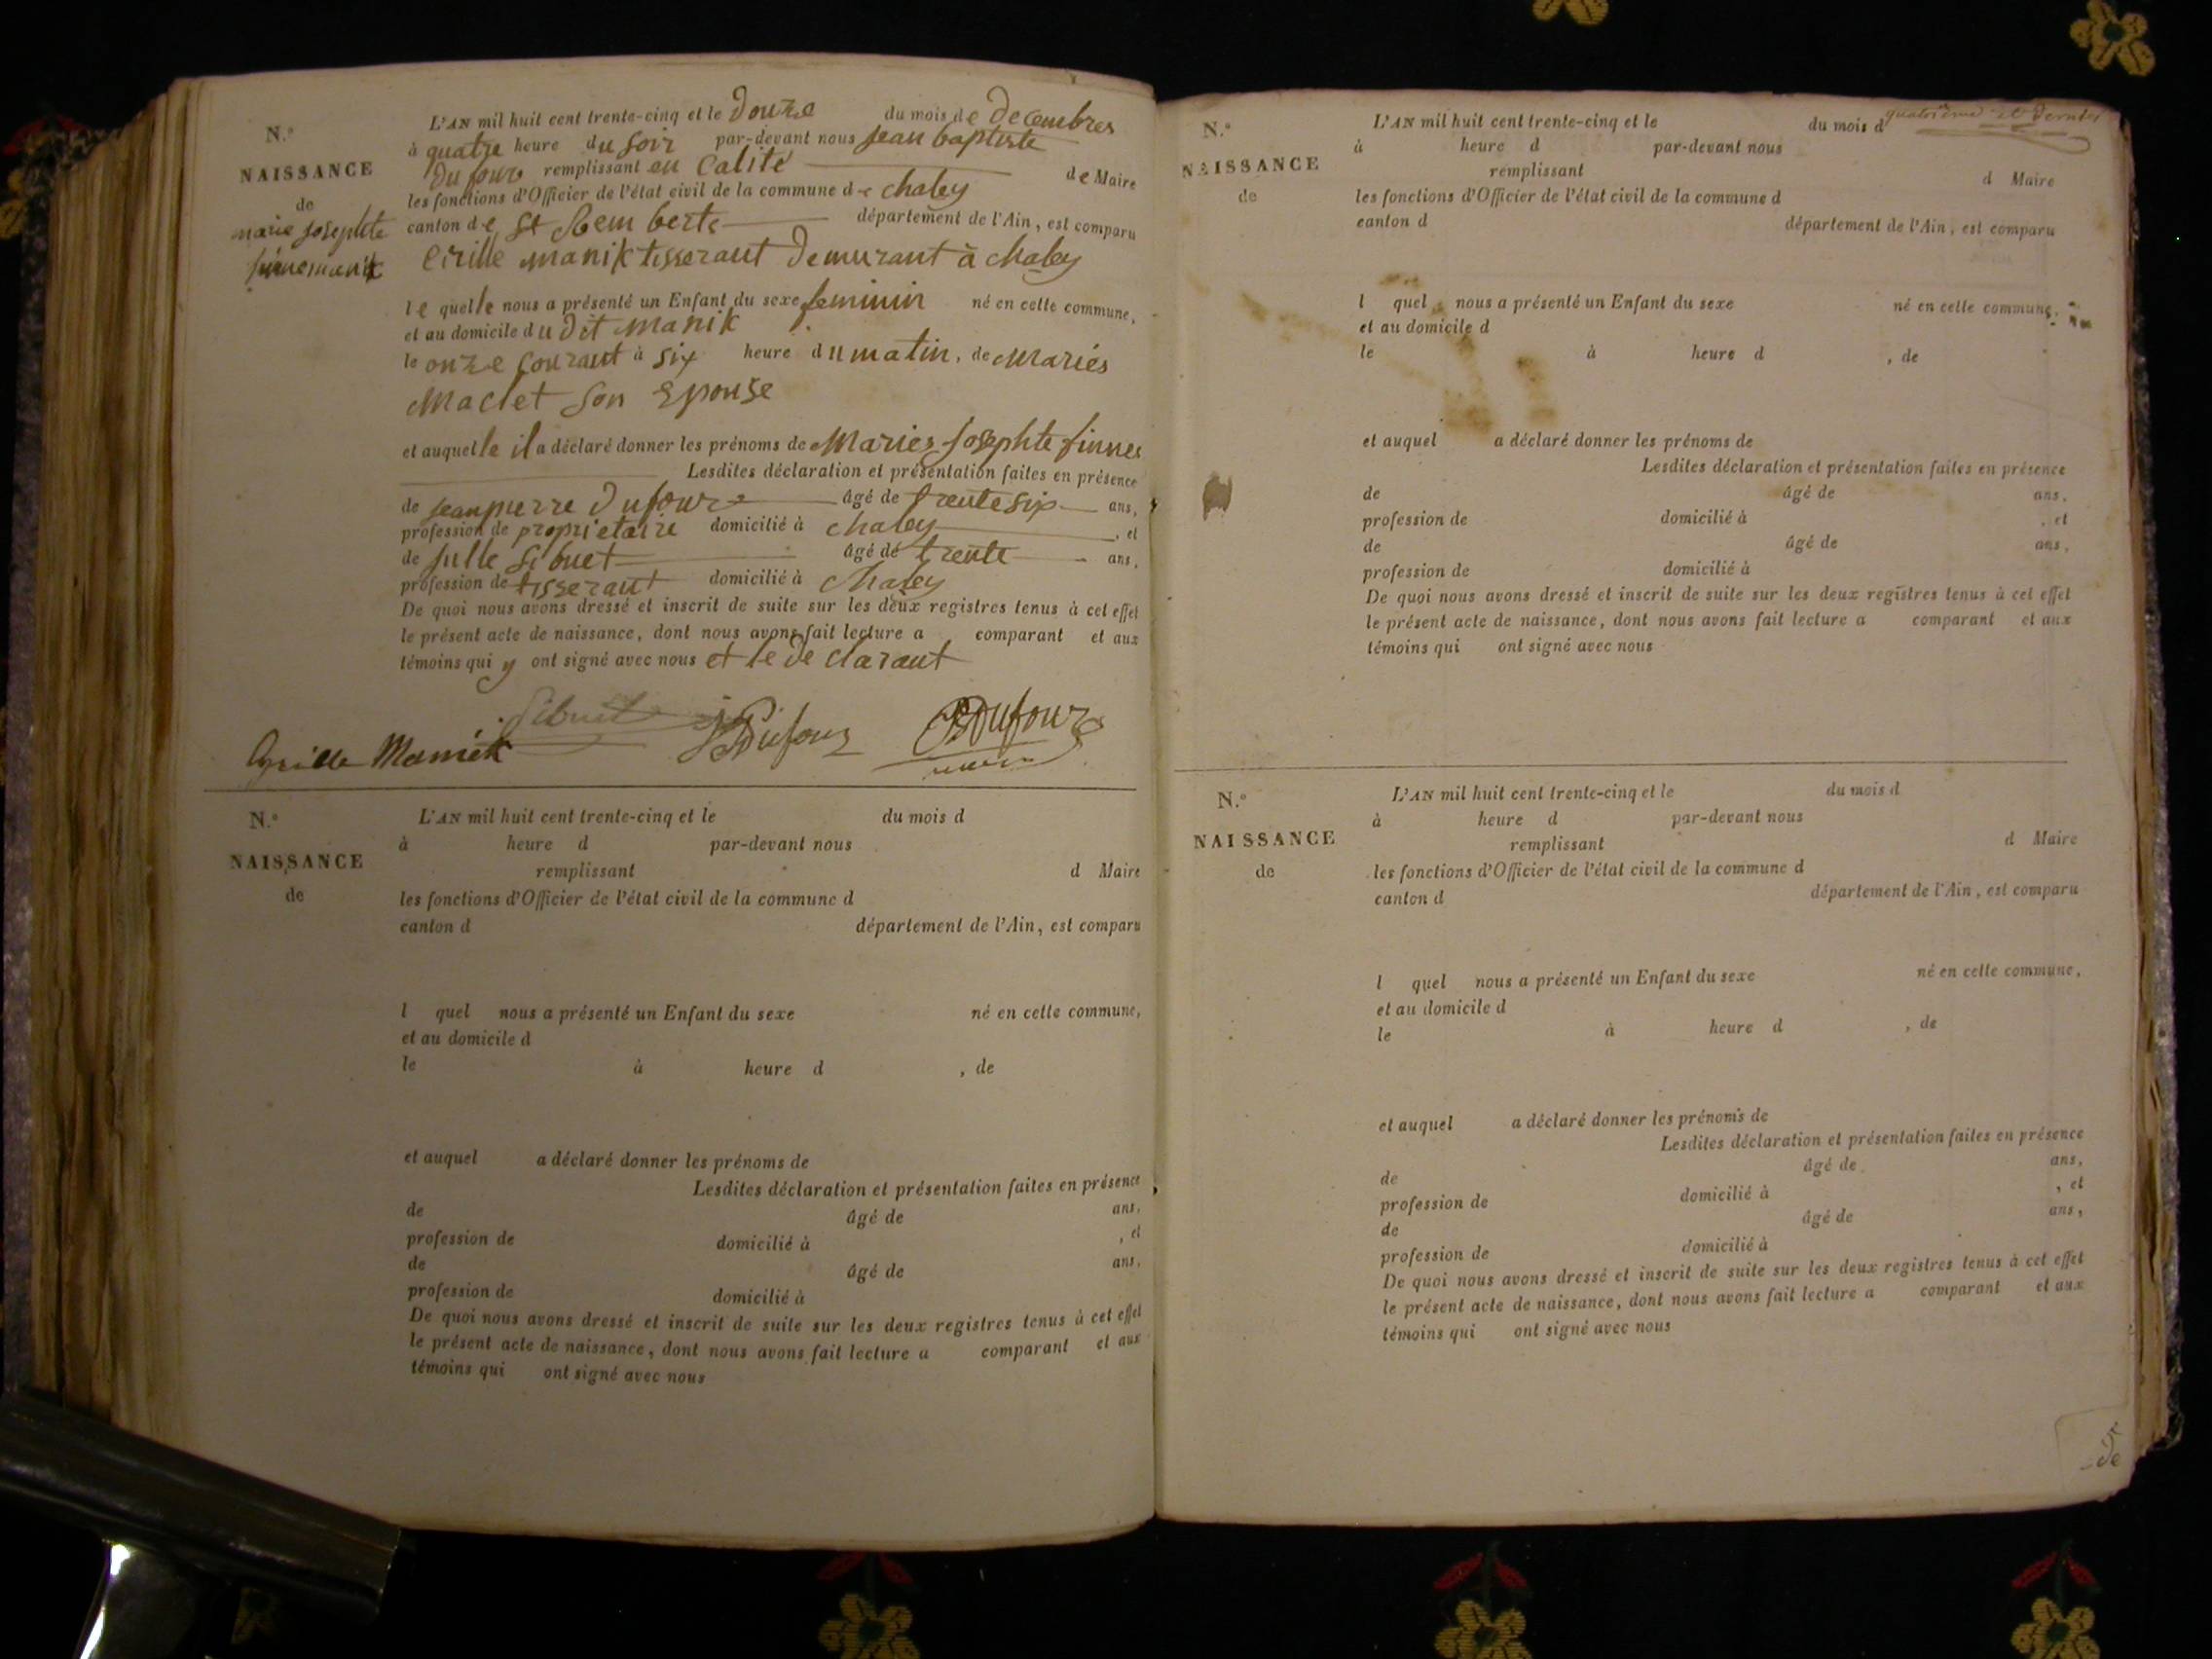 N.o
NAISSANCE
de
marie josephte
finne manik
L'AN mil huit cent trente-cinq et le Douze du mois de Decembres
à quatre heure du soir par-devant nous jean baptiste
Dufour remplissant en Calité de Maire
les fonctions d'Officier de l'état civil de la commune de chaley
canton de St Rem berte département de l'Ain, est comparu
Cirille manik tisseraut Demurant à chaley
le quelle nous a présenté un Enfant du sexe feminin né en cette commune,
et au domicile du Dit manik
le onze Courant à six heure du matin, de Mariés
Maclet son Epouse
et auquelle il a déclaré donner les prénoms de Maries Josephte finnes
Lesdites déclaration et présentation faites en présence
de jean pierre Dufour âgé de trente six ans,
profession de propriétaire domicilié à chaley, et
de julle Sibuet âgé de trente ans,
profession de tisseraut domicilié à Chaley
De quoi nous avons dressé et inscrit de suite sur les deux registres tenus à cet effet
le présent acte de naissance, dont nous avons fait lecture a comparant et aux
témoins qui y ont signé avec nous et le De claraut
Sibuet Dufour Dufour
Cyrille Manick maire
N.o
NAISSANCE
de
L'AN mil huit cent trente-cinq et le du mois d
à heure d par-devant nous
remplissant d Maire
les fonctions d'Officier de l'état civil de la commune d
canton d département de l'Ain, est comparu
l quel nous a présenté un Enfant du sexe né en cette commune,
et au domicile d
le à heure d , de
et auquel a déclaré donner les prénoms de
Lesdites déclaration et présentation faites en présence
de âgé de ans,
profession de domicilié à , et
de âgé de ans,
profession de domicilié à
De quoi nous avons dressé et inscrit de suite sur les deux registres tenus à cet effet
le présent acte de naissance, dont nous avons fait lecture a comparant et aux
témoins qui ont signé avec nous
quatorzième et dernier
N.o
NAISSANCE
de
L'AN mil huit cent trente-cinq et le du mois d
à heure d par-devant nous
remplissant d Maire
les fonctions d'Officier de l'état civil de la commune d
canton d département de l'Ain, est comparu
l quel nous a présenté un Enfant du sexe né en cette commune,
et au domicile d
le à heure d , de
et auquel a déclaré donner les prénoms de
Lesdites déclaration et présentation faites en présence
de âgé de ans,
profession de domicilié à , et
de âgé de ans,
profession de domicilié à
De quoi nous avons dressé et inscrit de suite sur les deux registres tenus à cet effet
le présent acte de naissance, dont nous avons fait lecture a comparant et aux
témoins qui ont signé avec nous
N.o
NAISSANCE
de
L'AN mil huit cent trente-cinq et le du mois d
à heure d par-devant nous
remplissant d Maire
les fonctions d'Officier de l'état civil de la commune d
canton d département de l'Ain, est comparu
l quel nous a présenté un Enfant du sexe né en cette commune,
et au domicile d
le à heure d , de
et auquel a déclaré donner les prénoms de
Lesdites déclaration et présentation faites en présence
de âgé de ans,
profession de domicilié à , et
de âgé de ans,
profession de domicilié à
De quoi nous avons dressé et inscrit de suite sur les deux registres tenus à cet effet
le présent acte de naissance, dont nous avons fait lecture a comparant et aux
témoins qui ont signé avec nous